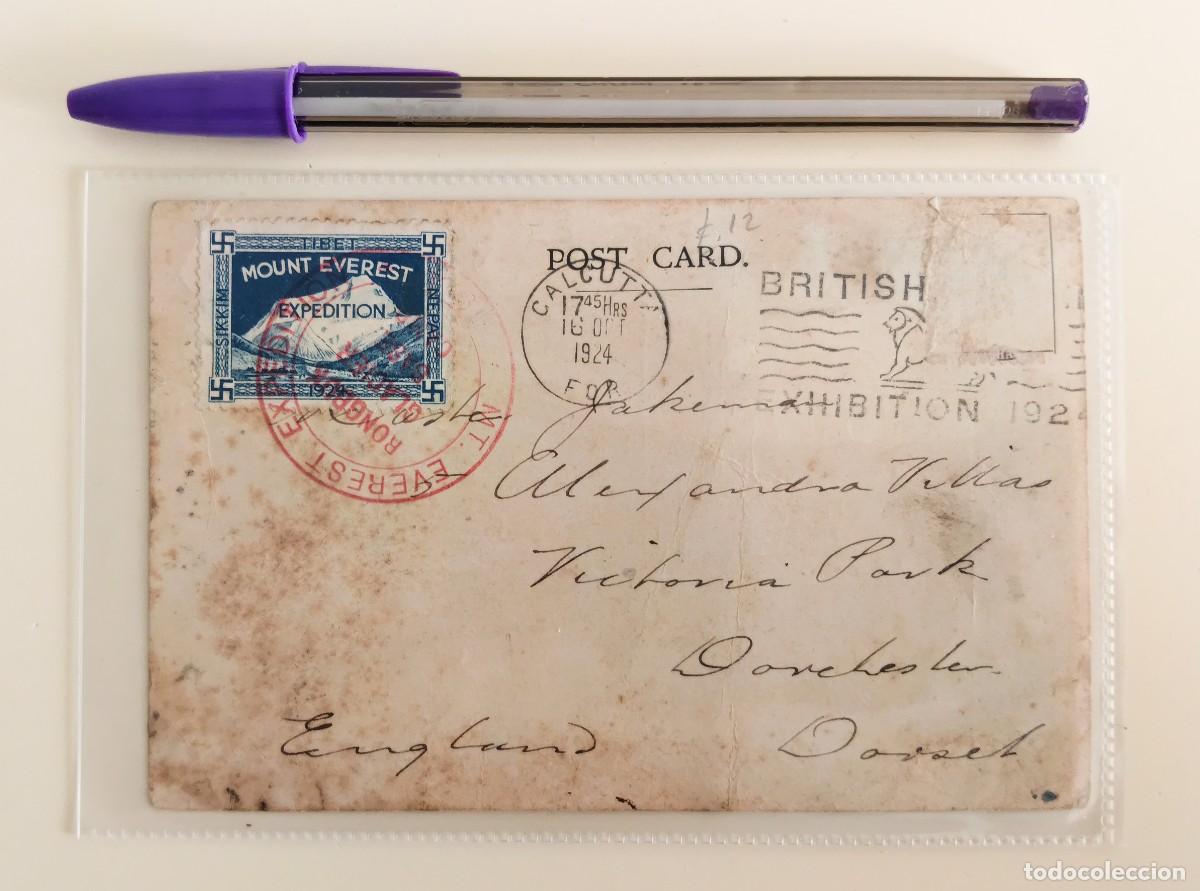 TIBET
MOUNT EVEREST
EXPEDITION
SIKKIM
NEPAL
1924
MT. EVEREST EXPEDITION
RONGBUK
₤.12
POST CARD.
CALCUTTA
17 45 HRS
16 OCT
1924
BRITISH
EXHIBITION 1924
Jakeman
5 Alexandra Villas
Victoria Park
Dorchester
England Dorset
todocoleccion